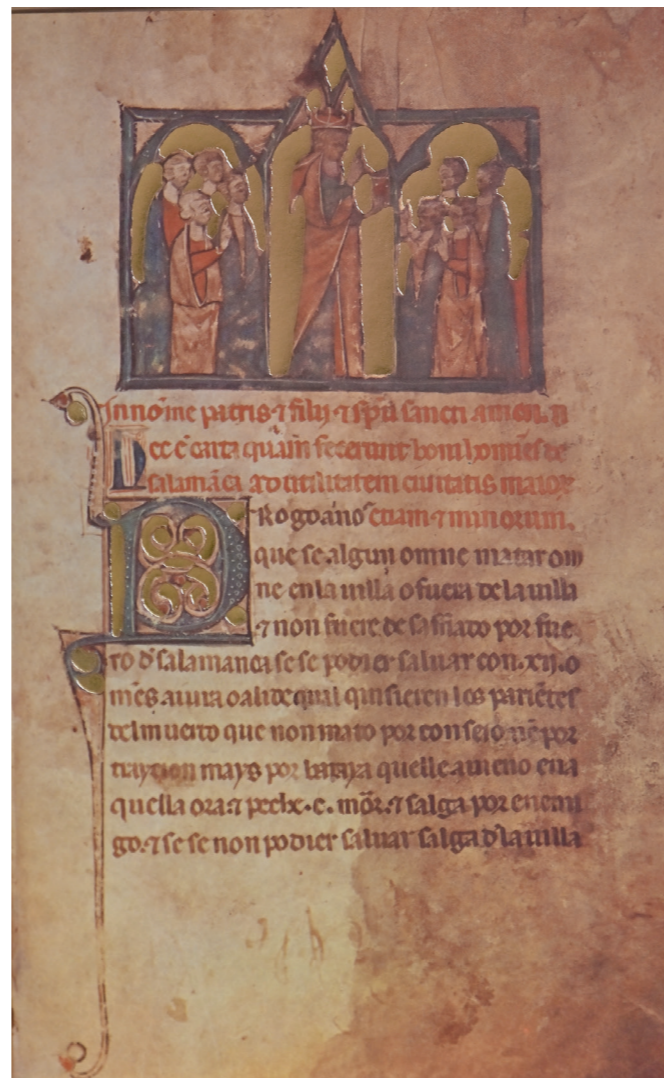 In noīe patris ⁊ filij ⁊ sp̄s sancti amen. h
ec ē carta quam fecerunt boni homīes de
salamāca ad utilitatem ciuitatis maior
Rogdano etiam ⁊ minorum.
D que se algun omne matar om
ne en la uilla o fuera de la uilla
⁊ non fuere desafiado por fue
ro d' salamanca se se podier saluar con .xij. o
mēs. aiura o a lide qual quisieren los pariētes
del muerto que non mato por conseio nē por
traycion mays por baraya quelle aueno en a
quella ora. ⁊ peche .c. mōr. ⁊ salga por enemi
go. ⁊ se se non podier saluar salga d'la uilla